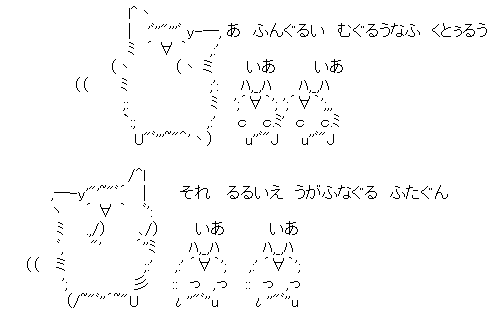 あ ふんぐるい むぐるうなふ くとぅるう
いあ いあ
それ るるいえ うがふなぐる ふたぐん
いあ いあ